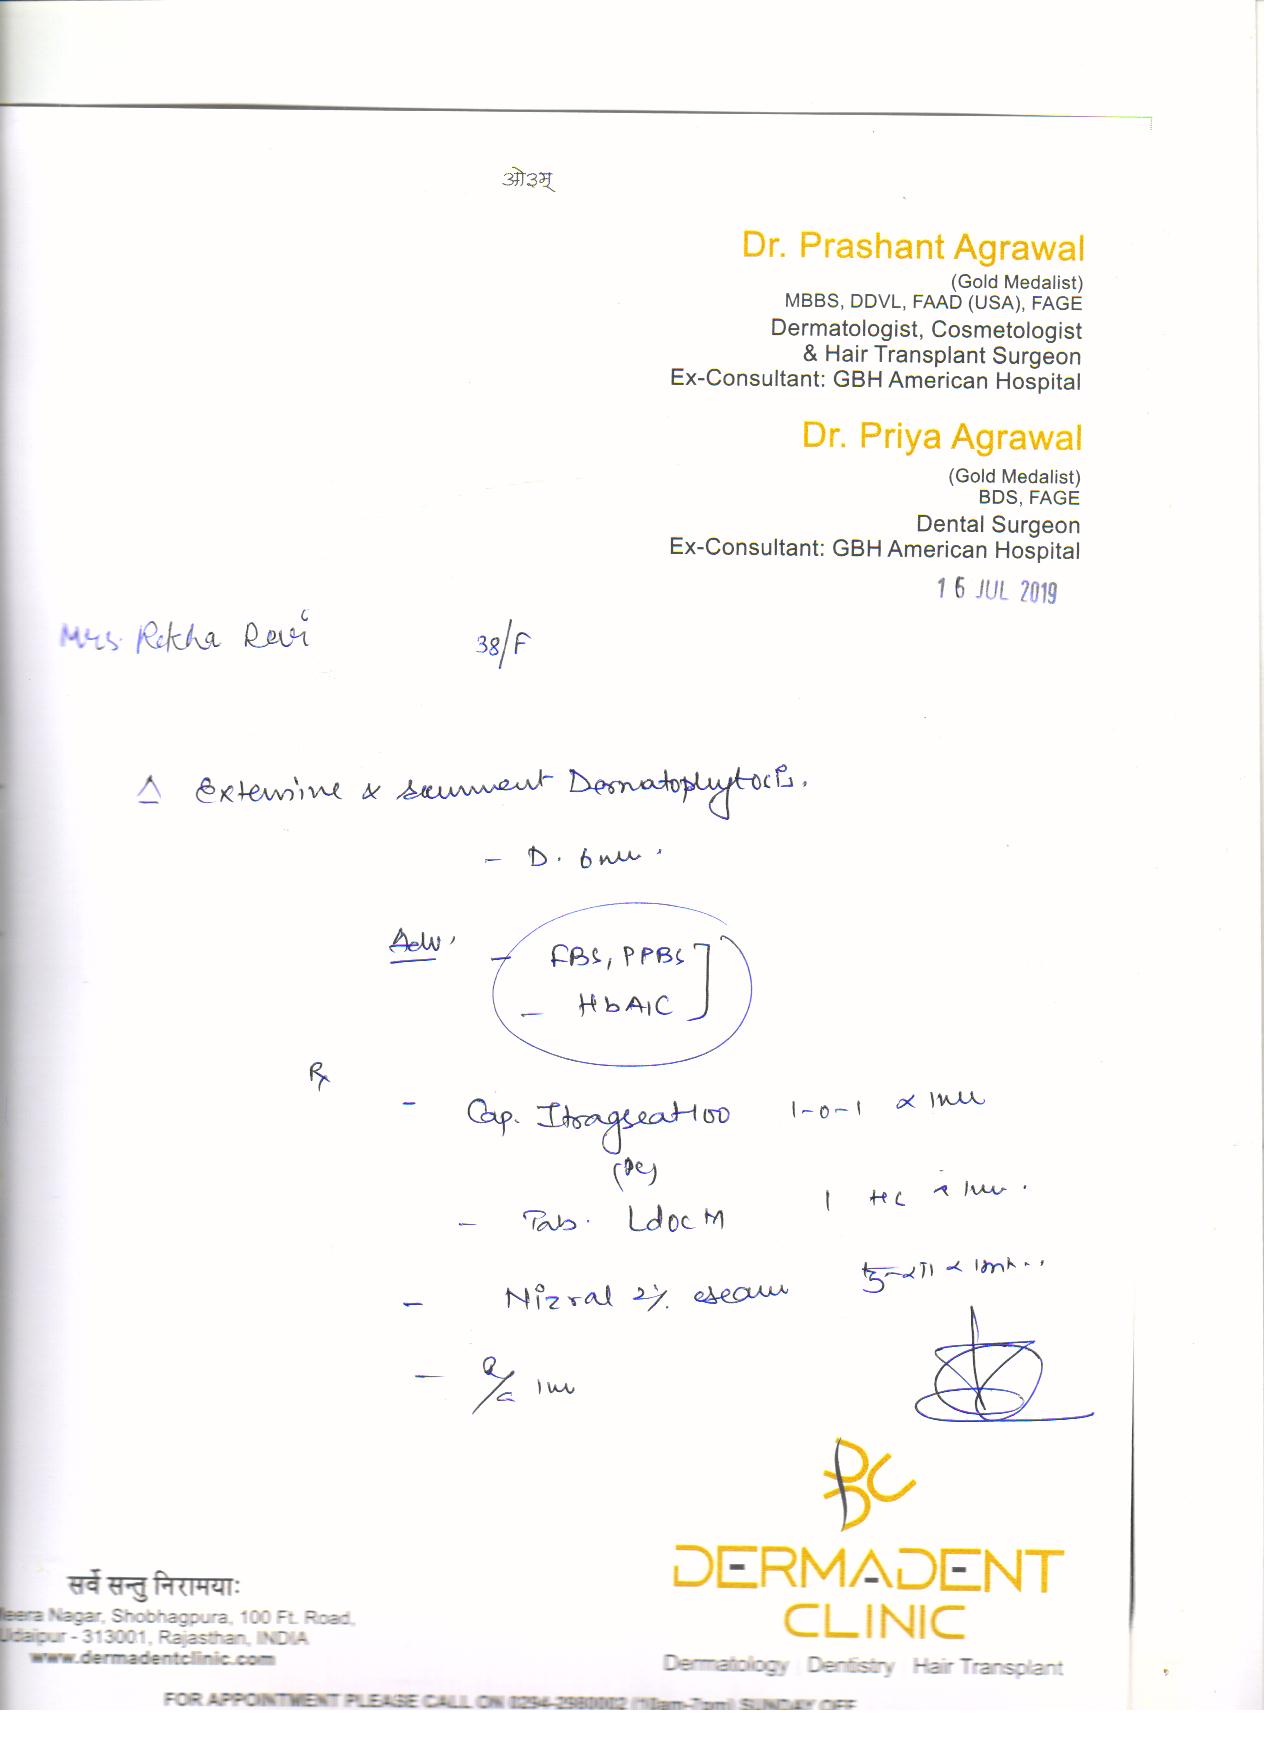 ओ३म्
Dr. Prashant Agrawal
(Gold Medalist)
MBBS, DDVL, FAAD (USA), FAGE
Dermatologist, Cosmetologist
& Hair Transplant Surgeon
Ex-Consultant: GBH American Hospital
Dr. Priya Agrawal
(Gold Medalist)
BDS, FAGE
Dental Surgeon
Ex-Consultant: GBH American Hospital
16 JUL 2019
Mrs. Rekha Devi 38/F
Δ Extensive & Dermatophytosis.
- D. 6
Adv. - FBS, PPBS
- HbA1C
Rx
- Cap. 1-0-1 x
- Tab. Ldoc M 1
- Nizral 2% cream
- 
DC
DERMADENT
CLINIC
Dermatology Dentistry Hair Transplant
सर्वे सन्तु निरामयाः
Nagar, Shobhagpura, 100 Ft. Road,
Udaipur - 313001, Rajasthan, INDIA
www.dermadentclinic.com
FOR APPOINTMENT PLEASE CALL ON 0294-2980002 (10am-7pm) SUNDAY OFF